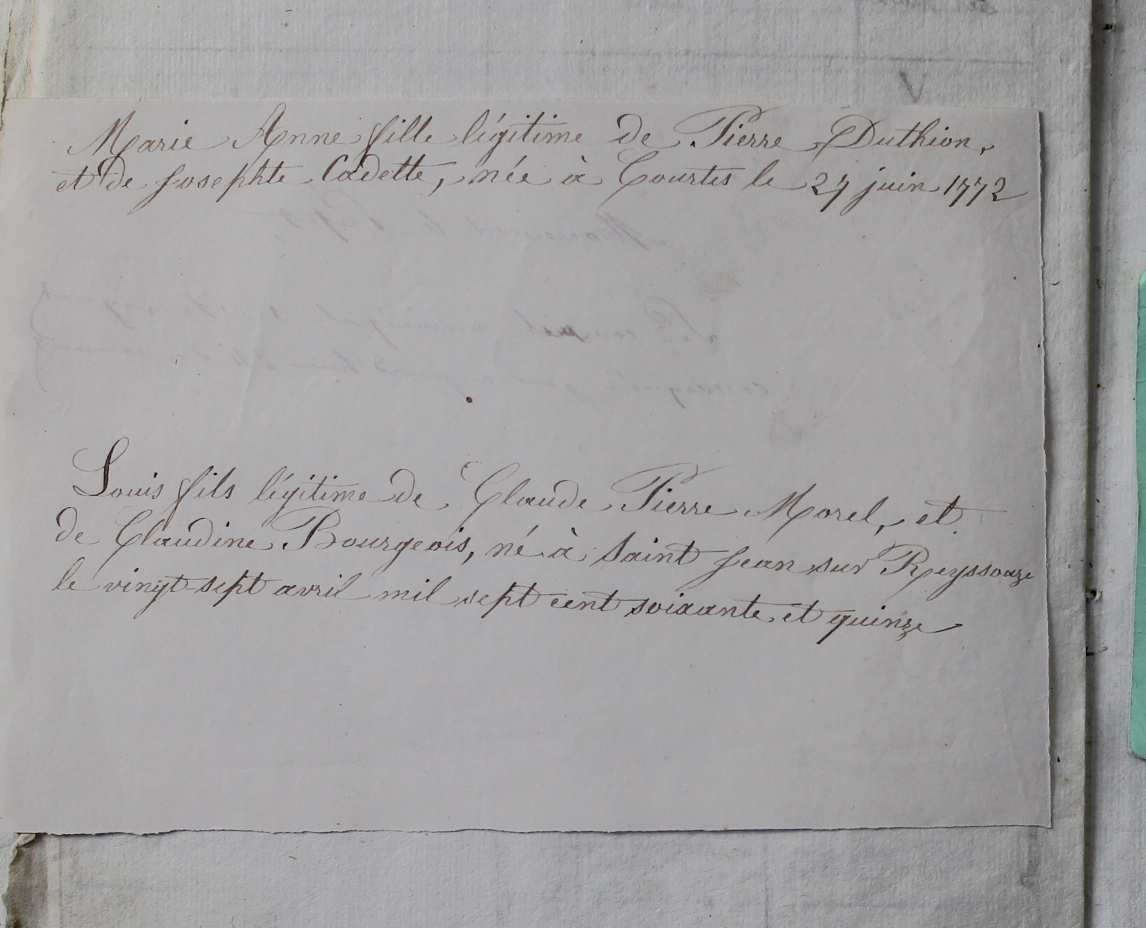 Marie Anne fille légitime de Pierre Duthion,
et de Josephte Cadette, née à Courtes le 27 juin 1772
Louis fils légitime de Claude Pierre Morel, et
de Claudine Bourgeois, né à Saint Jean sur Reyssouze
le vingt sept avril mil sept cent soixante et quinze